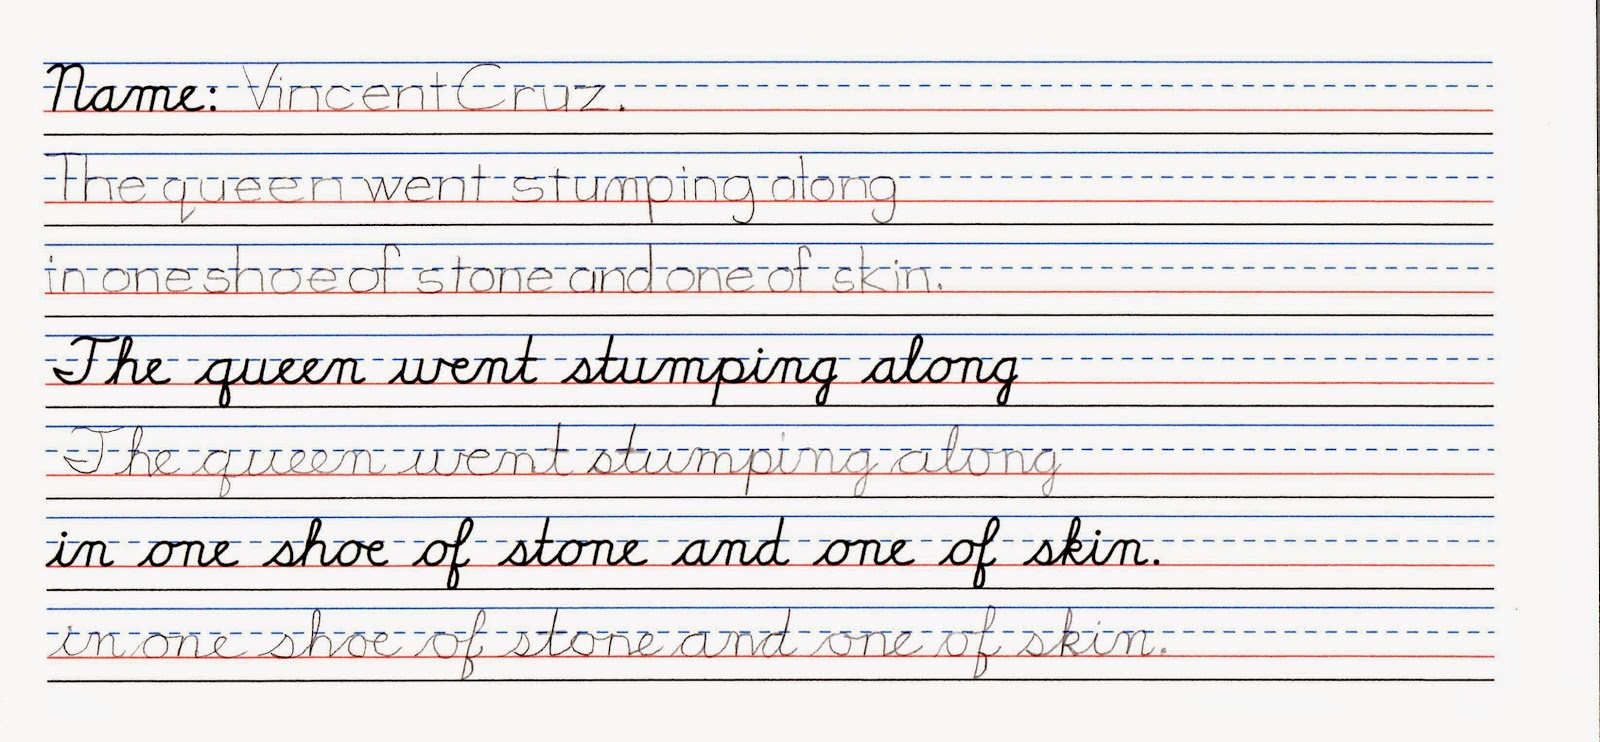 Name: Vincent Cruz.
The queen went stumping along
in one shoe of stone and one of skin.
The queen went stumping along
The queen went stumping along
in one shoe of stone and one of skin.
in one shoe of stone and one of skin.